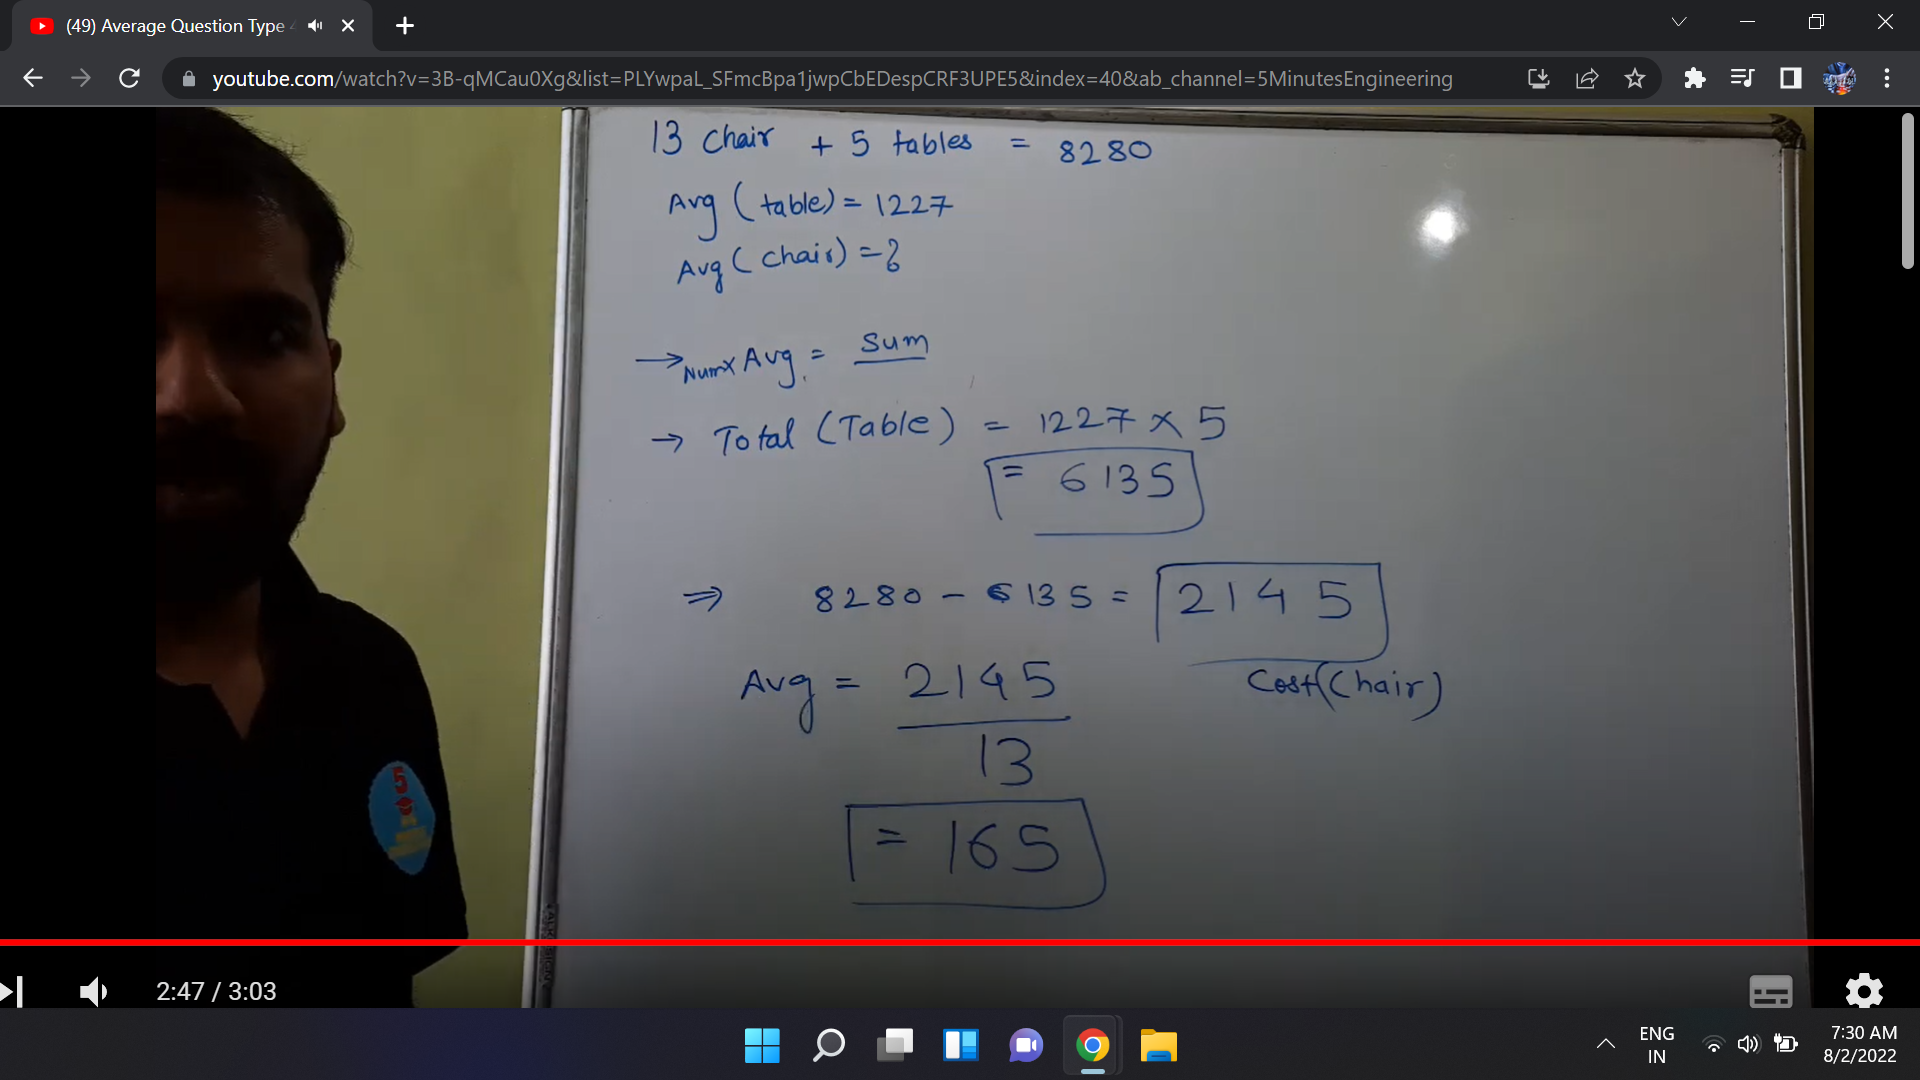 (49) Average Question Type
youtube.com/watch?v=3B-qMCau0Xg&list=PLYwpaL_SFmcBpa1jwpCbEDespCRF3UPE5&index=40&ab_channel=5MinutesEngineering
13 Chair + 5 tables = 8280
Avg (table) = 1227
Avg (chair) = ?
→ Num x Avg. = Sum
→ Total (Table) = 1227 x 5
= 6135
⇒ 8280 - 6135 = 2145
Cost (Chair)
Avg = 2145
13
= 165
5
2:47 / 3:03
ENG
IN
7:30 AM
8/2/2022